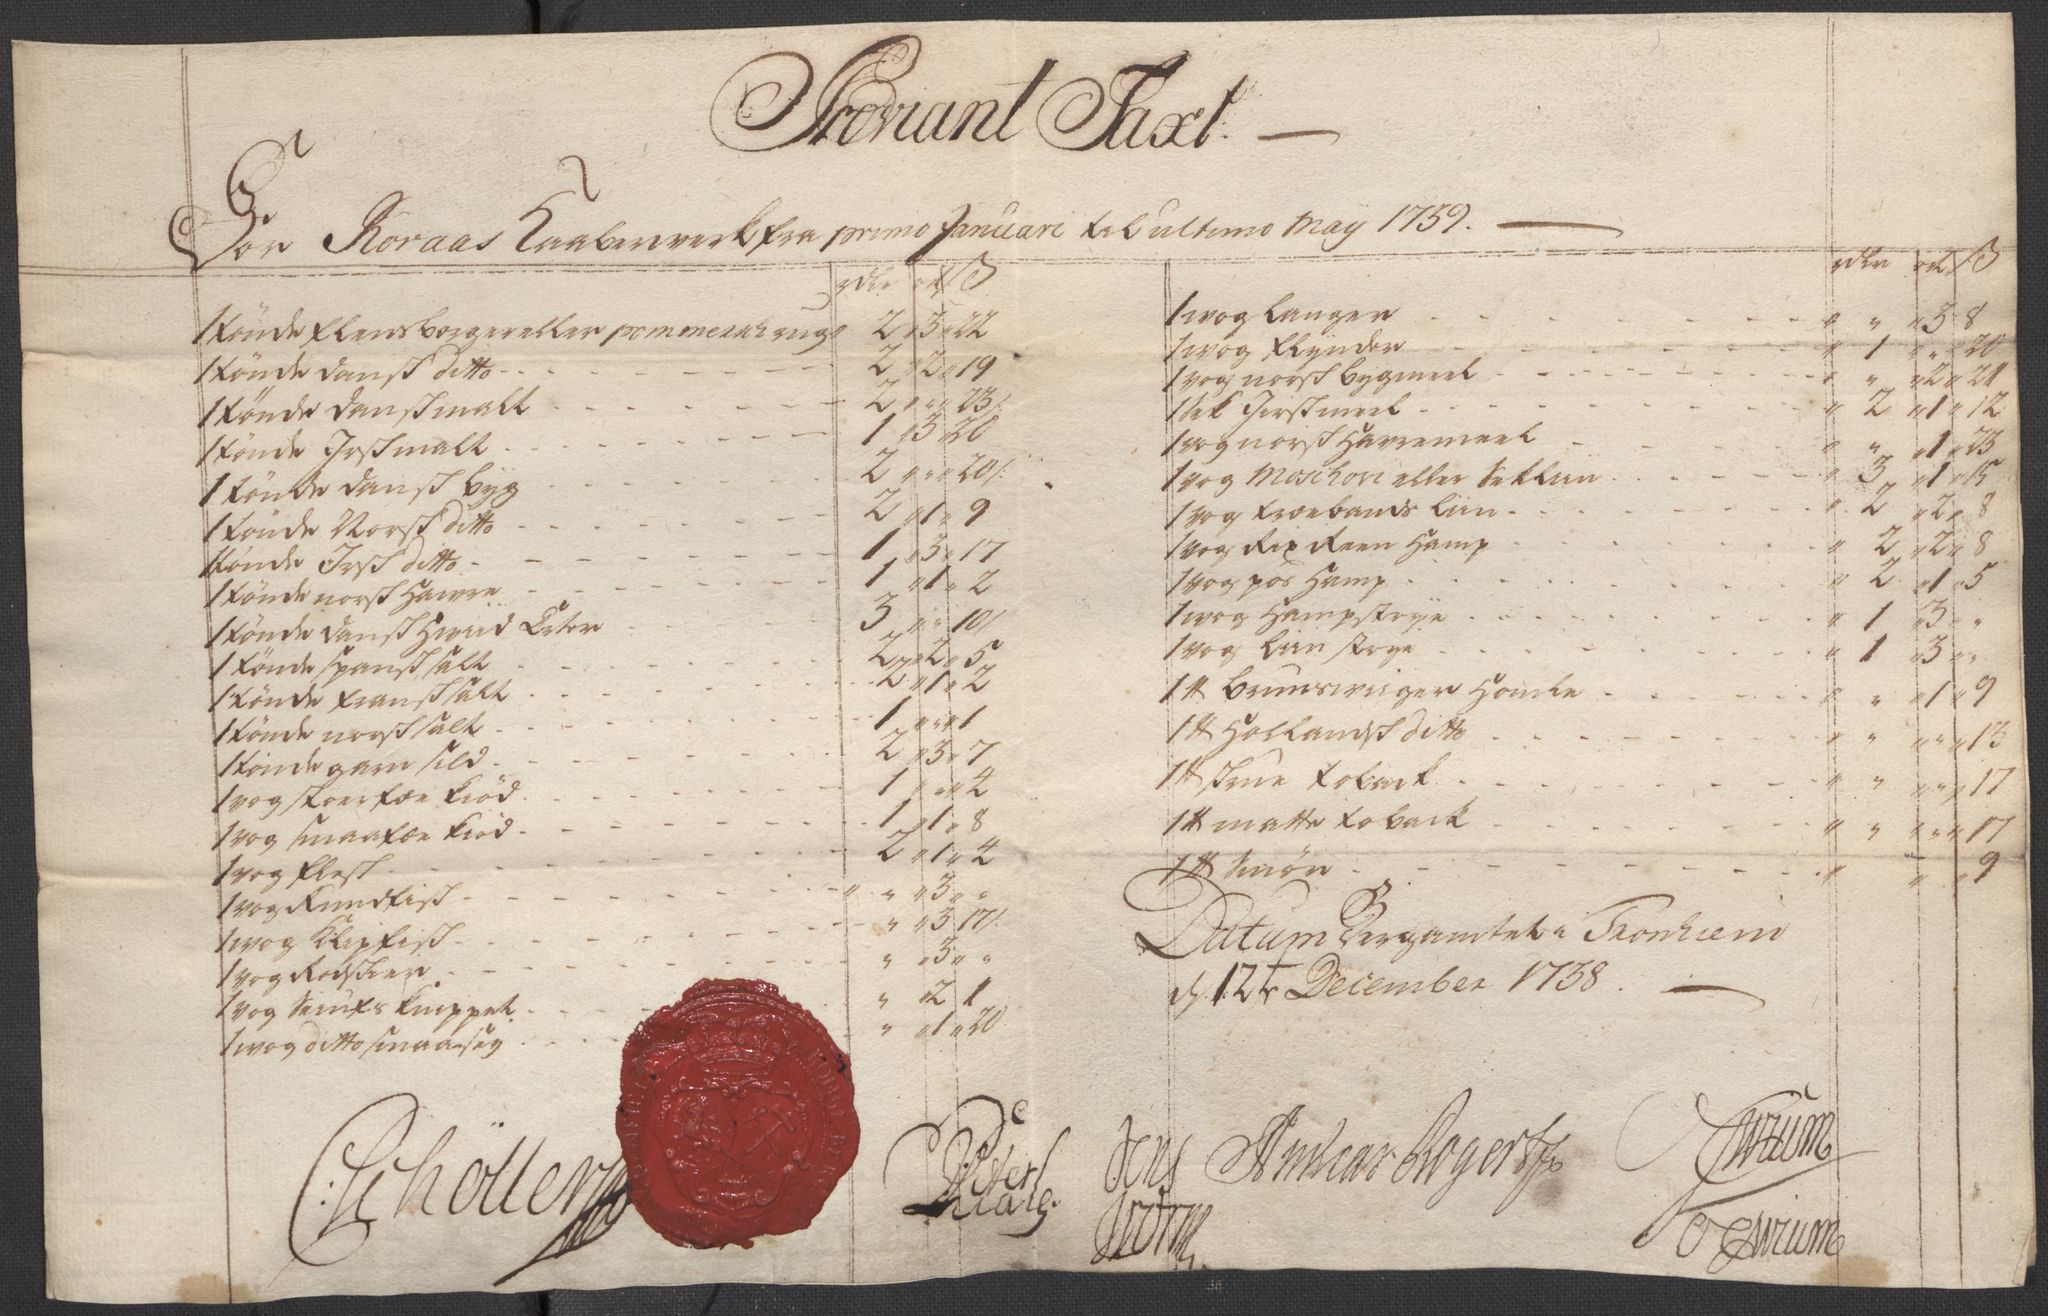 Proviant Taxt.
For Roraas Kaaberwerk fra primo Januari till ultimo May 1739.
rdlr ort ß
1 tønde flensborger eller pommersch rug 2 " 3 " 22
1 tønde dansk ditto 2 " 2 " 19
1 tønde dansk malt 2 " " " 23
1 tønde Irsk malt 1 " 3 " 20
1 tønde dansk byg 2 " " " 20
1 tønde Norsk ditto 2 " 1 " 9
1 tønde Irsk ditto 1 " 3 " 17
1 tønde norsk hawre 1 " 1 " 2
1 tønde dansk hwid Erter 3 " " " 10
1 tønde spansk salt 2 " 2 " 5
1 tønde fransk salt 2 " 1 " 2
1 tønde norsk salt 1 " " " 1
1 tønde garn sild 2 " 3 " 7
1 vog stoerfæe kiød 1 " " " 4
1 vog smaafæe kiød 1 " 1 " 8
1 vog flesk 2 " 1 " 4
1 vog Rundfisk " " " 3 " "
1 vog Klipfisk " " 3 17
1 vog Rodskier " " 3 " "
1 vog knippel " " 2 1
1 vog ditto smaa sey " " 1 " 20
rdlr ort ß
1 vog Langer " " " 3 8
1 vog flynder " 1 " " " 20
1 vog norsk bygmeel " " " 2 " 21
1 sek Irsk meel " 2 " 1 " 12
1 vog norsk Havremeel " " " 1 " 23
1 vog Moschovi eller 3 " 1 " 15
1 vog træbands Liin " 2 " 2 " 8
1 vog Reen Hamp " 2 " 2 " 8
1 vog pas Hamp " 2 " 1 " 5
1 vog Hampstrye " 1 " 3 " "
1 vog Liin strye " 1 " 3 " "
1 ℔ brunswiiger Homle " " " 1 " 9
1 ℔ Hollandsk ditto " " " " " 13
1 ℔ toback " " " " " 17
1 ℔ matte toback " " " " " 17
1 ℔ Smør " " " 9
Datum Bergamtet i Tronhiem
d 12te December 1738.
C Schøller
Peter
Jens